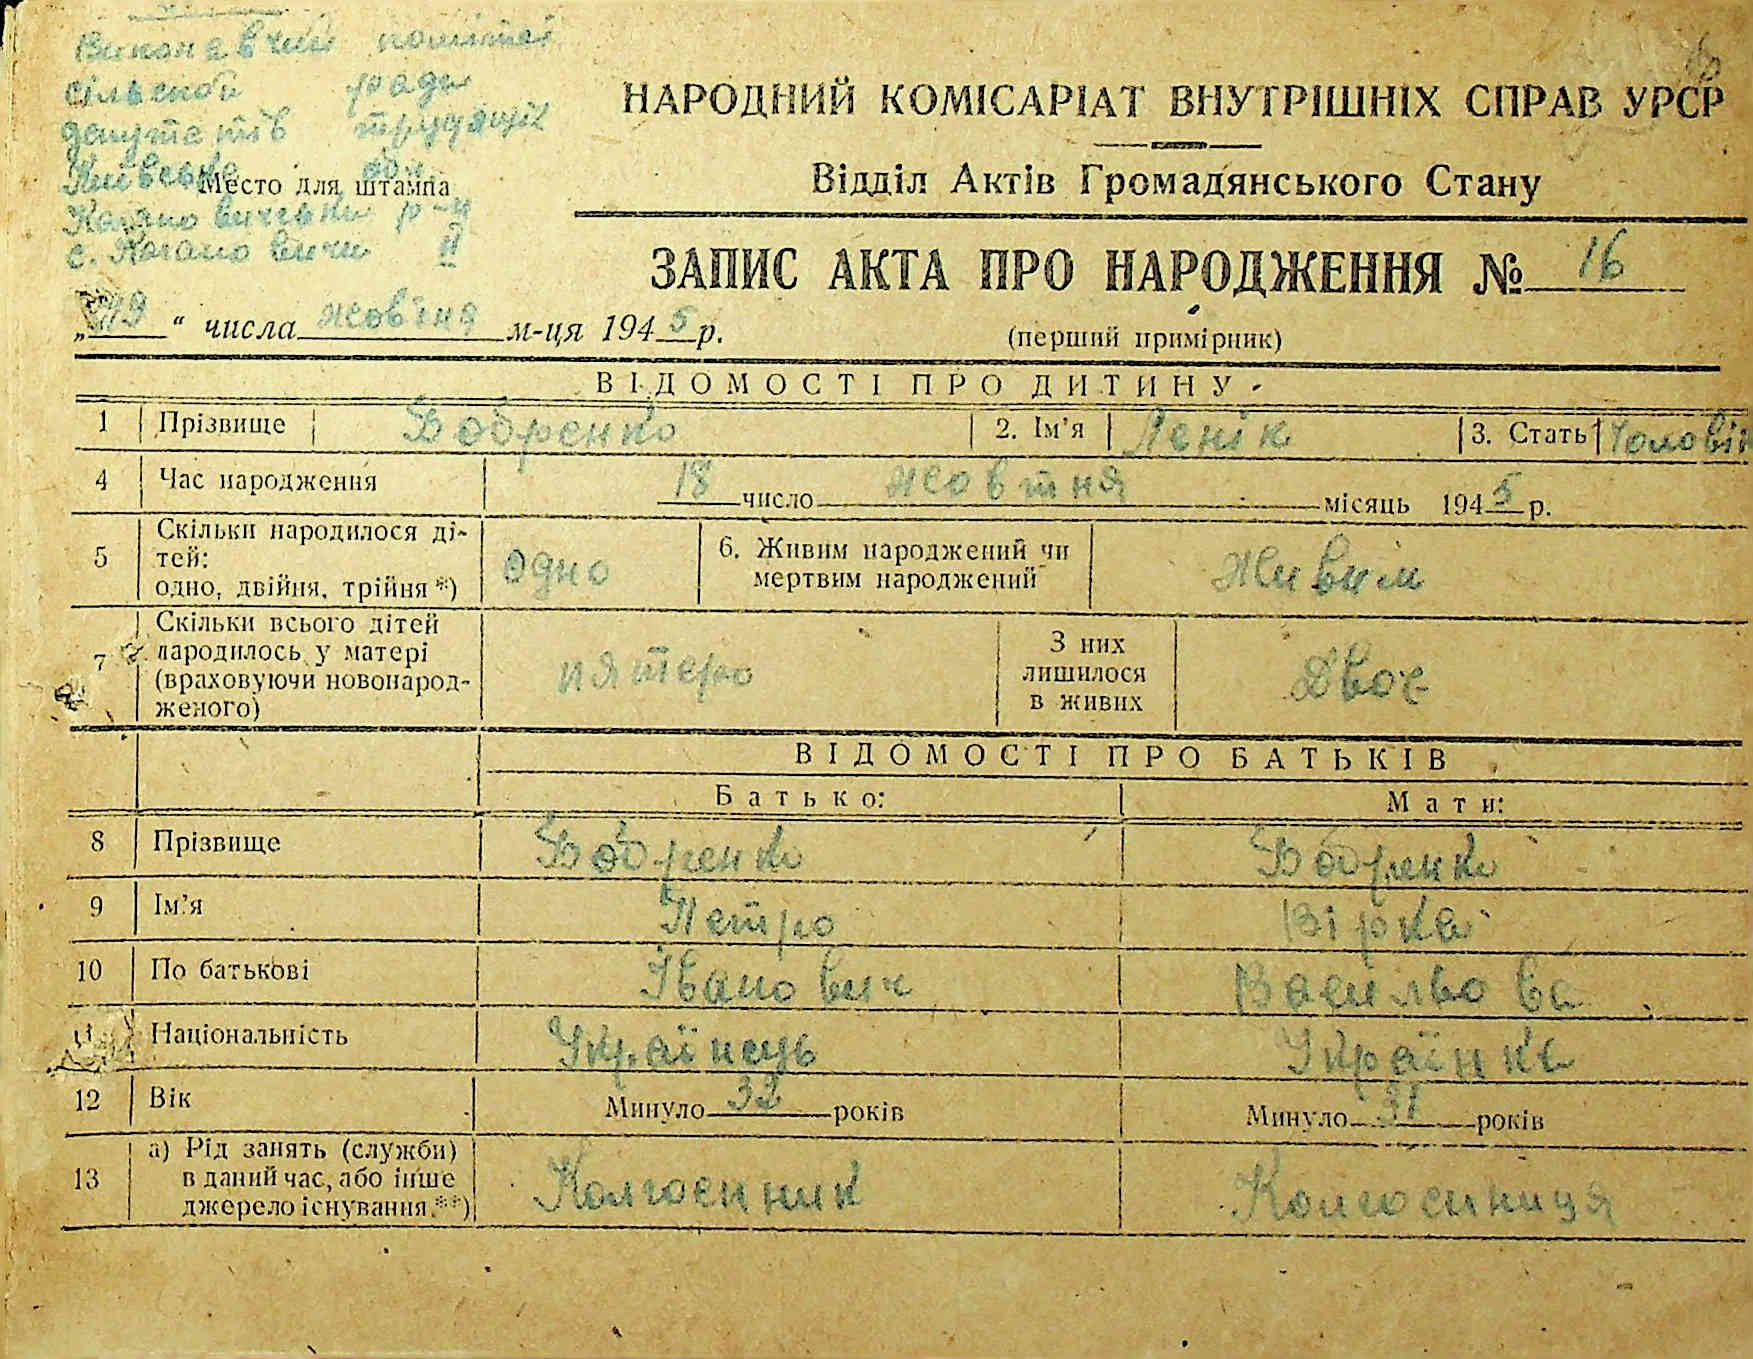 Виконавчий комітет
сільської ради
депутатів трудящих
Київська обл.
Место для штампа
Кагановичський р-н
с. Кагановичи II
НАРОДНИЙ КОМІСАРІАТ ВНУТРІШНІХ СПРАВ УРСР
Відділ Актів Громадянського Стану
ЗАПИС АКТА ПРО НАРОДЖЕННЯ № 16
„19“ числа жовтня м-ця 1945 р.
(перший примірник)
ВІДОМОСТІ ПРО ДИТИНУ
1 Прізвище Бобренко 2. Ім’я Ленік 3. Стать Чоловік
4 Час народження 18 число жовтня місяць 1945 р.
5 Скільки народилося ді-
тей:
одно, двійня, трійня *) одно 6. Живим народжений чи
мертвим народжений Живим
7 Скільки всього дітей
народилось у матері
(враховуючи новонарод-
женого) пятеро З них
лишилося
в живих Двоє
ВІДОМОСТІ ПРО БАТЬКІВ
Батько: Мати:
8 Прізвище Бобренко Бобренко
9 Ім’я Петро Вірка
10 По батькові Іванович Васильова
11 Національність Українець Українка
12 Вік Минуло 32 років Минуло 31 років
13 а) Рід занять (служби)
в даний час, або інше
джерело існування **) Колгоспник Колгоспниця